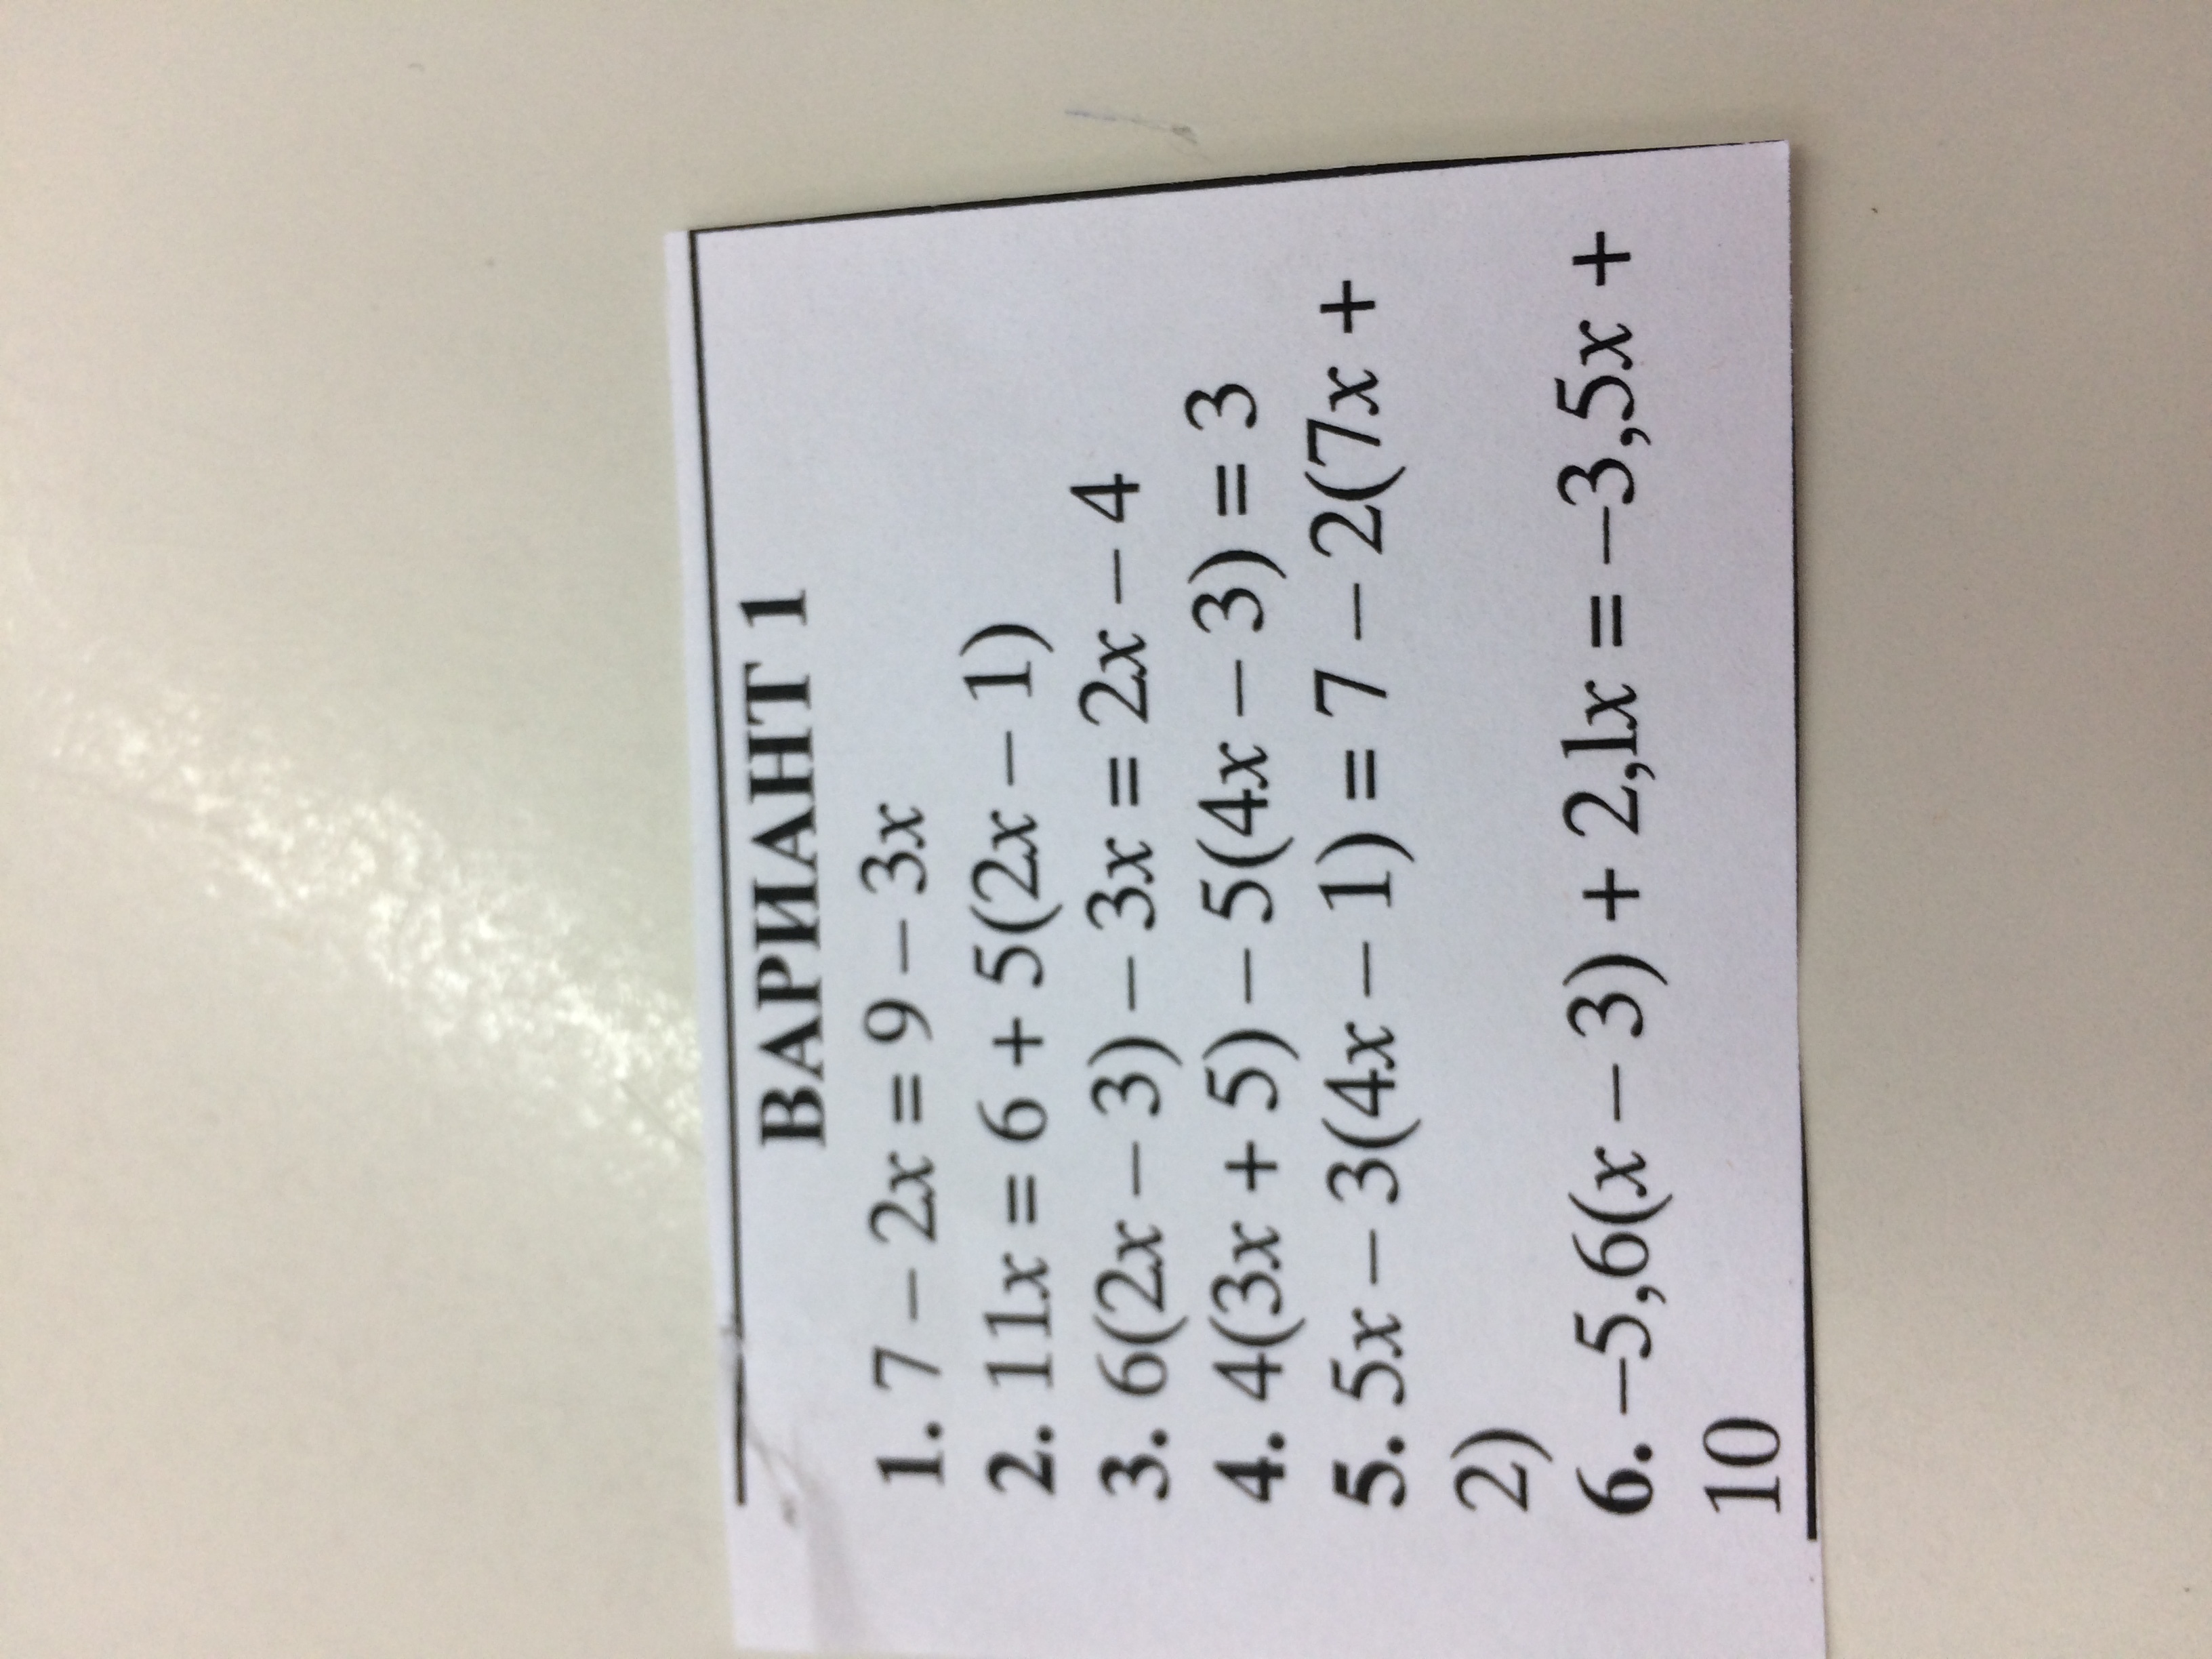 ВАРИАНТ 1
1. 7 – 2x = 9 – 3x
2. 11x = 6 + 5(2x – 1)
3. 6(2x – 3) – 3x = 2x – 4
4. 4(3x + 5) – 5(4x – 3) = 3
5. 5x – 3(4x – 1) = 7 – 2(7x +
2)
6. –5,6(x – 3) + 2,1x = –3,5x +
10